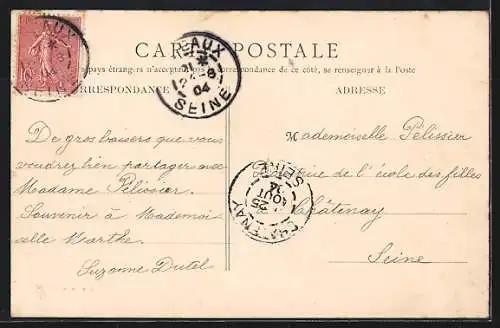 CARTE POSTALE
pays étrangers n'acceptant pas la correspondance de ce côté, se renseigner à la Poste
CORRESPONDANCE
ADRESSE
SCEAUX
SEINE
04
De gros baisers que vous
voudrez bien partager avec
Madame Pélissier.
Souvenir à Mademoi
selle Marthe.
Suzanne Dutel
Mademoiselle Pélissier
de l'école des filles
Châtenay
Seine
CHATENAY
25
AOUT
04
SEINE